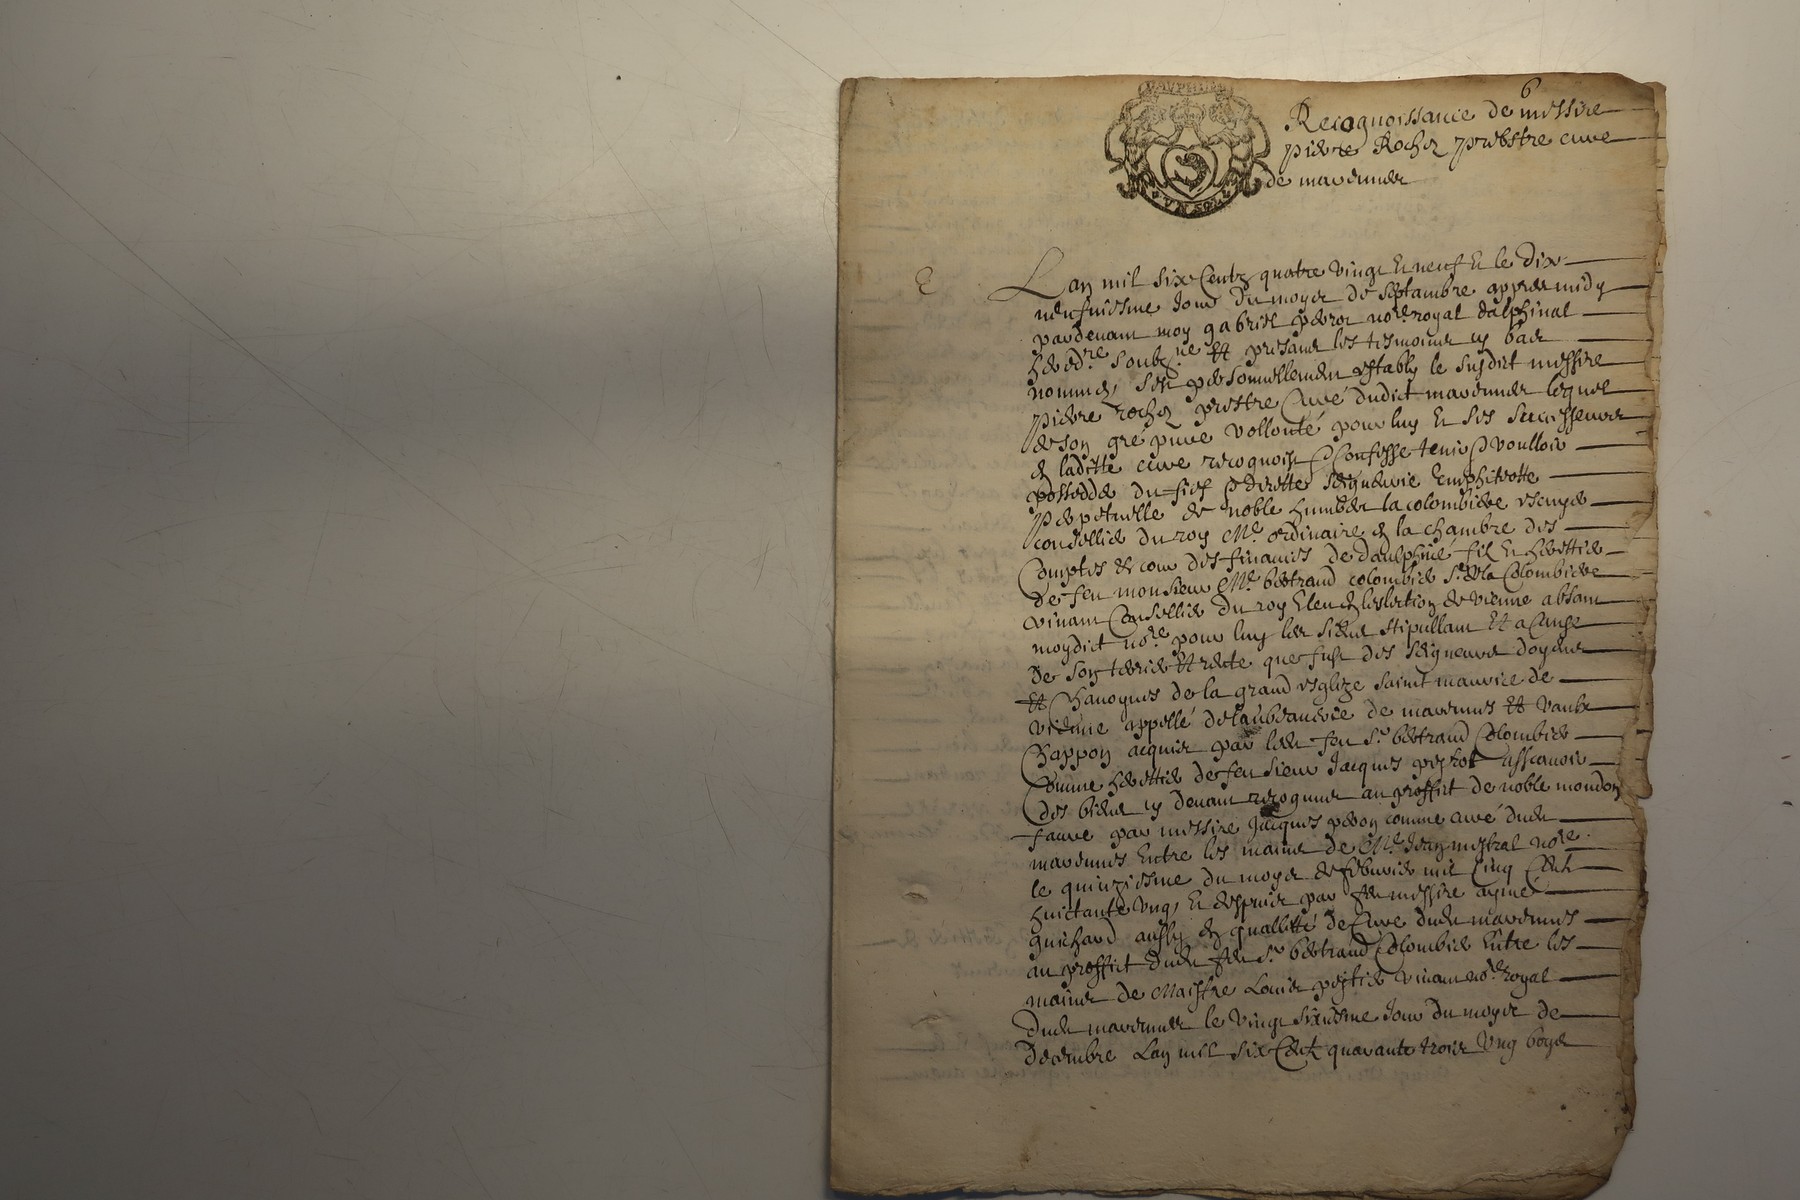 6
DAUPHINE
VN SOL
Recognoissance de messire
pierre Rocher prebstre cure
de marennes
E
Lan mil six Centz quatre vingt Et neuf Et le dix
neufviesme Jour du moys de septambre appres midy
pardevant moy gabriel no.re royal dalphinal
hered.re soubz.ne Et presants les tesmoins cy bas
nommes, sest personnellement estably le susdict messire
pierre rocher prestre Curé dudict marennes lequel
de son gré pure vollonté pour luy Et ses successeurs
en laditte cure recognoist Confesse tenir voulloir
posseder du fief directte seigneurie Emphiteotte
perpetuelle de noble humbert la colombiere escuyer
conseillier du roy M.e ordinaire en la chambre des
Comptes et cour des finances de daulphiné fils Et herettier
de feu monsieur M.e bertrand colombier s.r de la Colombiere
vivant Conseillier du roy Eleu en leslection de vienne absant
moydict no.re pour luy les siens stipullant Et a Cause
de son terrier Et rente que fust des seigneurs doyens
Et Chanoynes de la grand esglize saint maurice de
vienne appellé de de marennes Et vaulx
Chappon acquise par led feu s.r bertrand Colombier
Comme herettier de feu sieur Jacques assçavoir
des biens cy devant recogneus au proffict de noble mondon
faure par messire Jacques comme curé dud
marennes Entre les mains de M.e Jean mistral no.re
le quinziesme du moys de febvrier mil Cinq Centz
huictante ung, Et despuis par feu messire aymé
guichard aussy en quallitté de Cure dud marennes
au proffict dud feu s.r bertrand Colombier Entre les
mains de Maistre Louis vivant no.re royal
dud marennes le vingt sixiesme Jour du moys de
décembre Lan mil six Centz quarante trois Ung boys